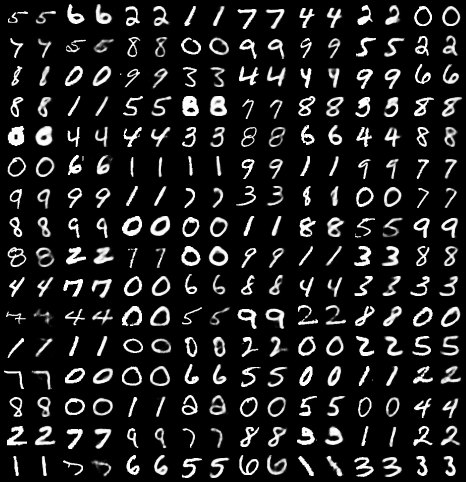 5 5 6 6 2 2 1 1 7 7 4 4 2 2 0 0
7 7 5 5 8 8 0 0 9 9 9 9 5 5 2 2
8 8 0 0 9 9 3 3 4 4 4 4 9 9 6 6
8 8 1 1 5 5 8 8 7 7 8 8 3 3 8 8
0 0 4 4 4 4 3 3 8 8 6 6 4 4 8 8
0 0 6 6 1 1 1 1 9 9 1 1 9 9 7 7
9 9 9 9 1 1 7 7 3 3 8 8 0 0 7 7
8 8 9 9 0 0 0 0 1 1 8 8 5 5 9 9
8 8 2 2 7 7 0 0 9 9 1 1 3 3 8 8
4 4 7 7 0 0 6 6 8 8 4 4 3 3 3 3
4 4 0 0 5 5 9 9 2 2 8 8 0 0
1 1 1 1 0 0 0 0 2 2 0 0 2 2 5 5
7 7 0 0 0 0 6 6 5 5 0 0 1 1 2 2
8 8 0 0 1 1 2 2 0 0 5 5 0 0 4 4
2 2 7 7 9 9 7 7 8 8 1 1 2 2
1 1 7 7 6 6 5 5 6 6 1 1 3 3 3 3